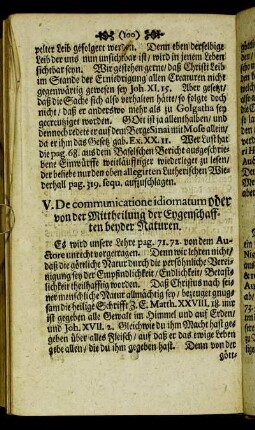 (100)
pelter Leib gefolgert werden. Denn eben derselbige
Leib der uns nun unsichtbar ist/ wird in jenem Leben
sichtbar seyn. Wir gestehen gerne/ daß Christi Leib
im Stande der Erniedrigung allen Creaturen nicht
gegenwärtig gewesen sey Joh. XI. 15. Aber gesetzt/
daß die Sache sich also verhalten hätte/ so folgte doch
nicht/ daß er anderstwo mehr als zu Golgatha sey
gecreutziget worden. GOtt ist ja allenthalben/ und
dennoch redete er auf dem Berge Sinai mit Mose allein/
da er ihm das Gesetz gab. Ex. XX. 11. Wer Lust hat
die pag. 68. aus dem Baselischen Bericht ausgeschrie-
bene Einwürffe weitläufftiger wiederleget zu lesen/
der beliebe nur den oben allegirten Lutherischen Wie-
derhall pag. 319. sequ. aufzuschlagen.
V. De communicatione idiomatum oder
von der Mittheilung der Eygenschaff-
ten beyder Naturen.
Es wird unsere Lehre pag. 71. 72. von dem Au-
ctore unrecht vorgetragen. Denn wir lehren nicht/
daß die göttliche Natur durch die persöhnliche Verei-
nigung sey der Empfindlichkeit/ Endlichkeit/ Betast-
lichkeit theilhafftig worden. Daß Christus nach sei-
ner menschliche Natur allmächtig sey/ bezeuget gnug-
sam die heilige Schrifft Z. E. Matth. XXVIII. 18. mir
ist gegeben alle Gewalt im Himmel und auf Erden/
und Joh. XVII. 2. Gleichwie du ihm Macht hast ge-
geben über alles Fleisch/ auf daß er das ewige Leben
gebe allen/ die du ihm gegeben hast. Denn von der
gött-